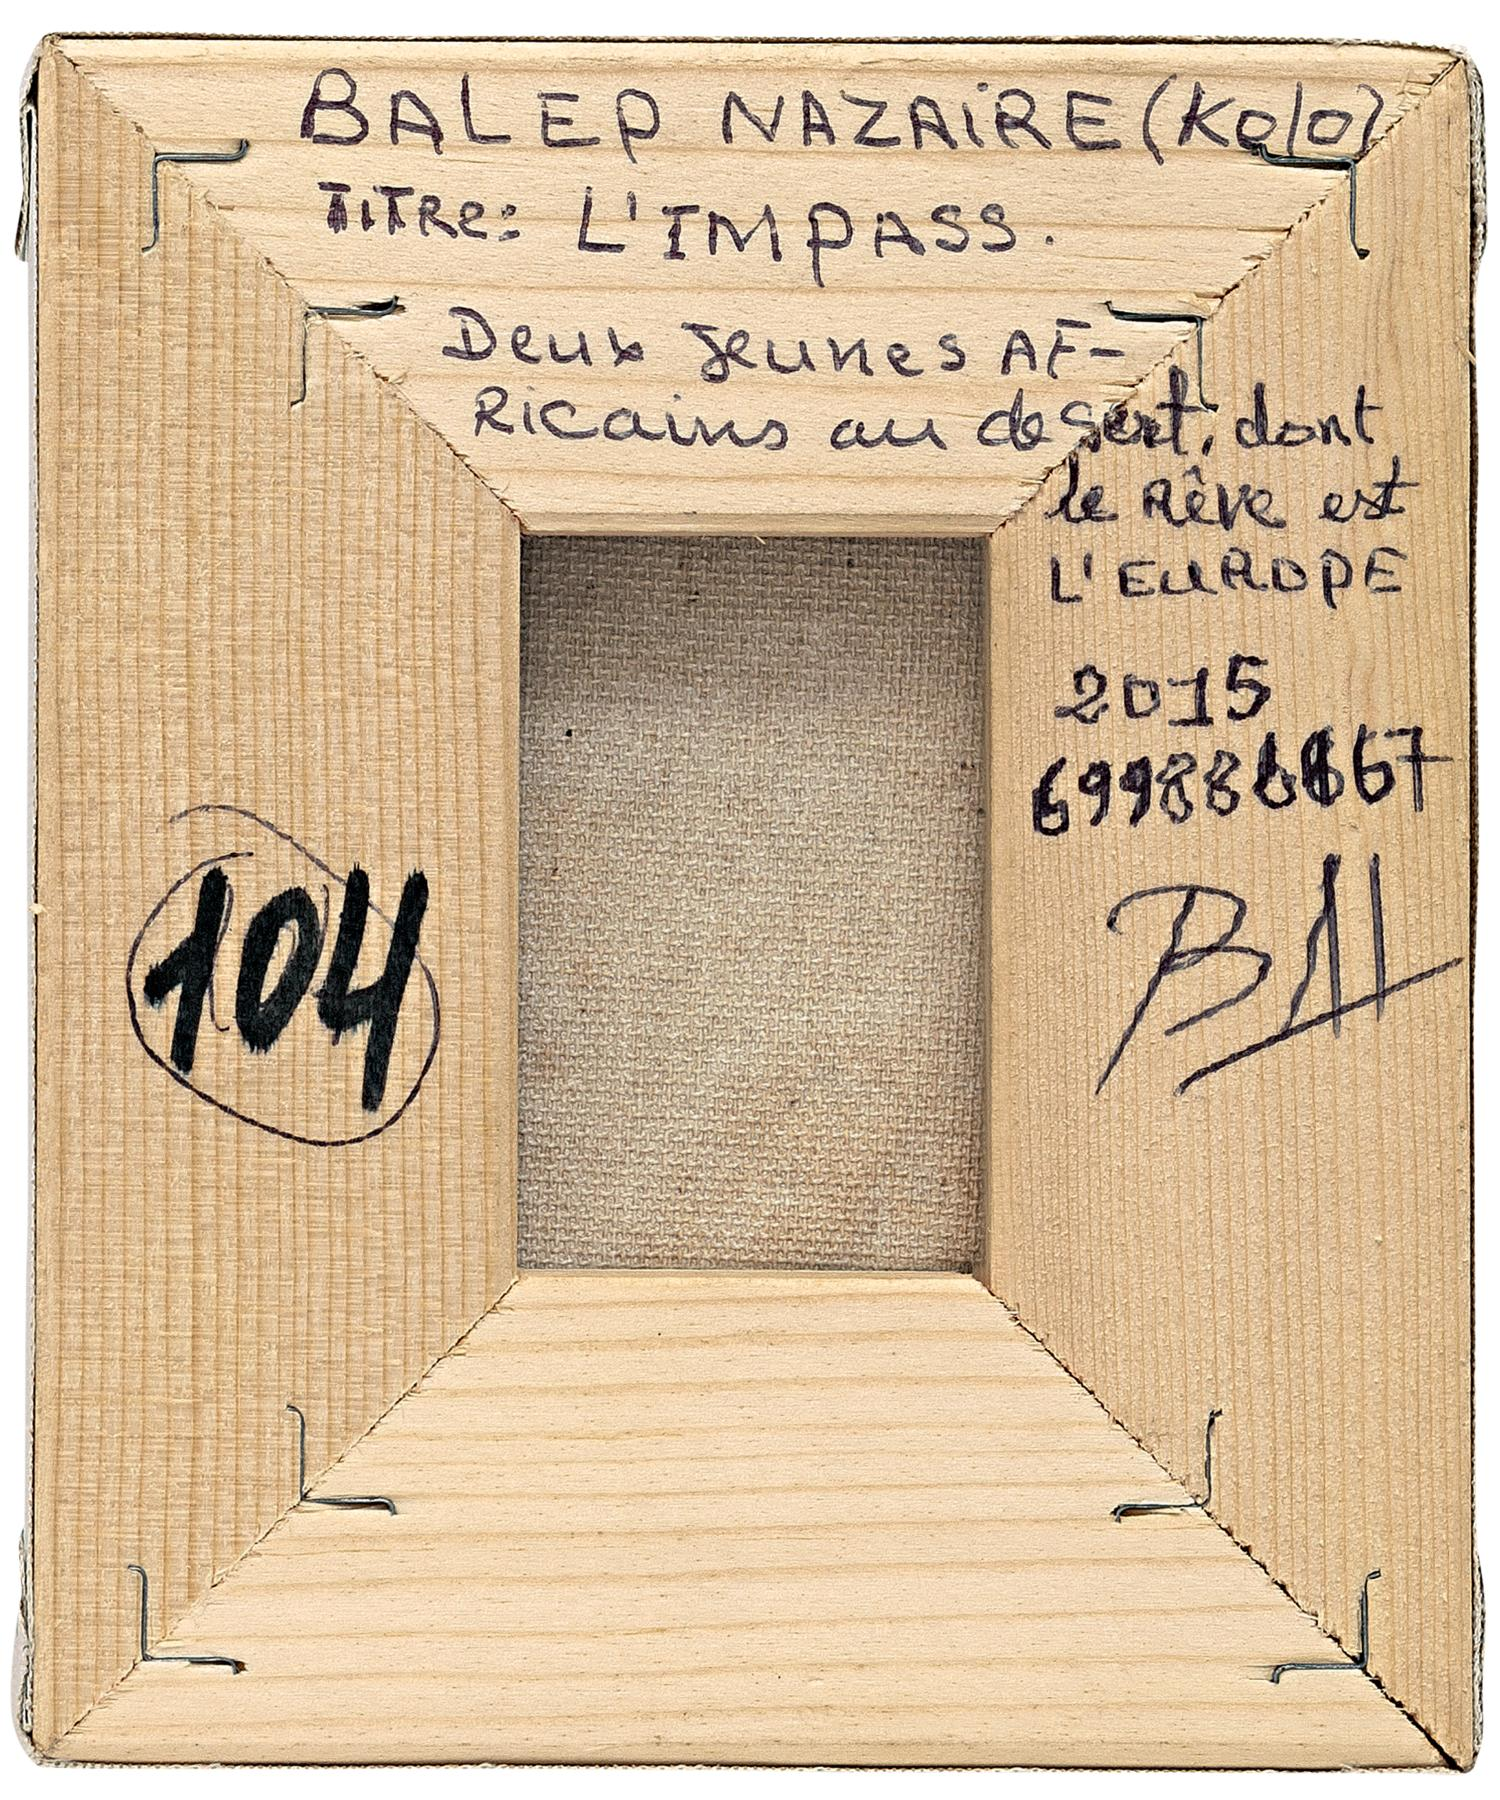 BALEP NAZAIRE (Kolo)
TITRe: L'IMPASS.
Deux jeunes AF-
Ricains au desert, dont
le Rêve est
L'EUROPE
2015
104